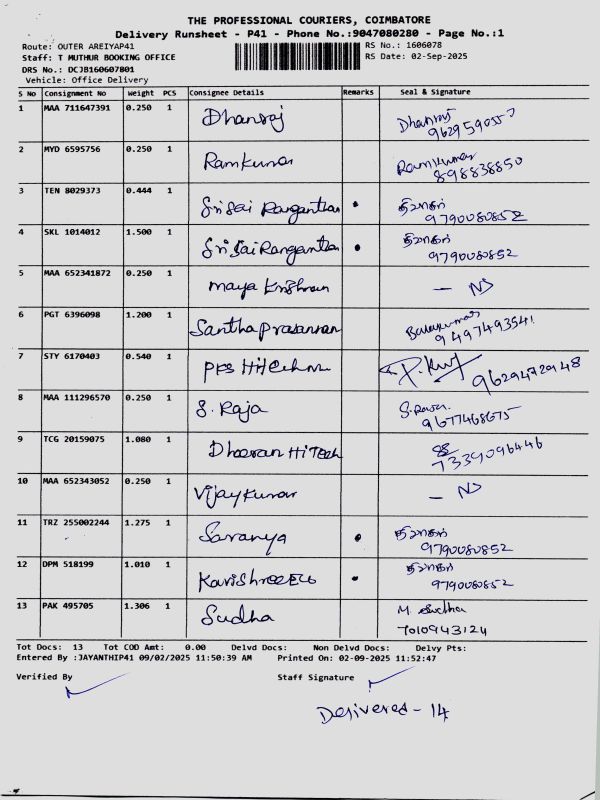 THE PROFESSIONAL COURIERS, COIMBATORE
Delivery Runsheet - P41 - Phone No.:9047080280 - Page No.:1
Route: OUTER AREIYAP41 RS No.: 1606078
Staff: T MUTHUR BOOKING OFFICE RS Date: 02-Sep-2025
DRS No.: DCJB160607801
Vehicle: Office Delivery
S No Consignment No Weight PCS Consignee Details Remarks Seal & Signature
1 MAA 711647391 0.250 1 Dhanraj Dhanraj
9629590557
2 MYD 6595756 0.250 1 Ramkumar Ramkumar
898838850
3 TEN 8029373 0.444 1 Sri Sai Ranganthan • தினகர்
9790080852
4 SKL 1014012 1.500 1 Sri Sai Ranganthan • தினகர்
9790080852
5 MAA 652341872 0.250 1 maya Krishnan — NS
6 PGT 6396098 1.200 1 Santha prasannan Balakumar
9497493541
7 STY 6170403 0.540 1 PPS Hitech 9629472948
8 MAA 111296570 0.250 1 S. Raja S. Raja
9677468675
9 TCG 20159075 1.080 1 Dheeran HiTech
7339096446
10 MAA 652343052 0.250 1 Vijaykumar — NS
11 TRZ 255002244 1.275 1 Saranya • தினகர்
9790080852
12 DPM 518199 1.010 1 Kavishree • தினகர்
9790080852
13 PAK 495705 1.306 1 Sudha M. Sudha
7010943124
Tot Docs: 13 Tot COD Amt: 0.00 Delvd Docs: Non Delvd Docs: Delvy Pts:
Entered By :JAYANTHIP41 09/02/2025 11:50:39 AM Printed On: 02-09-2025 11:52:47
Verified By Staff Signature
Delivered - 14